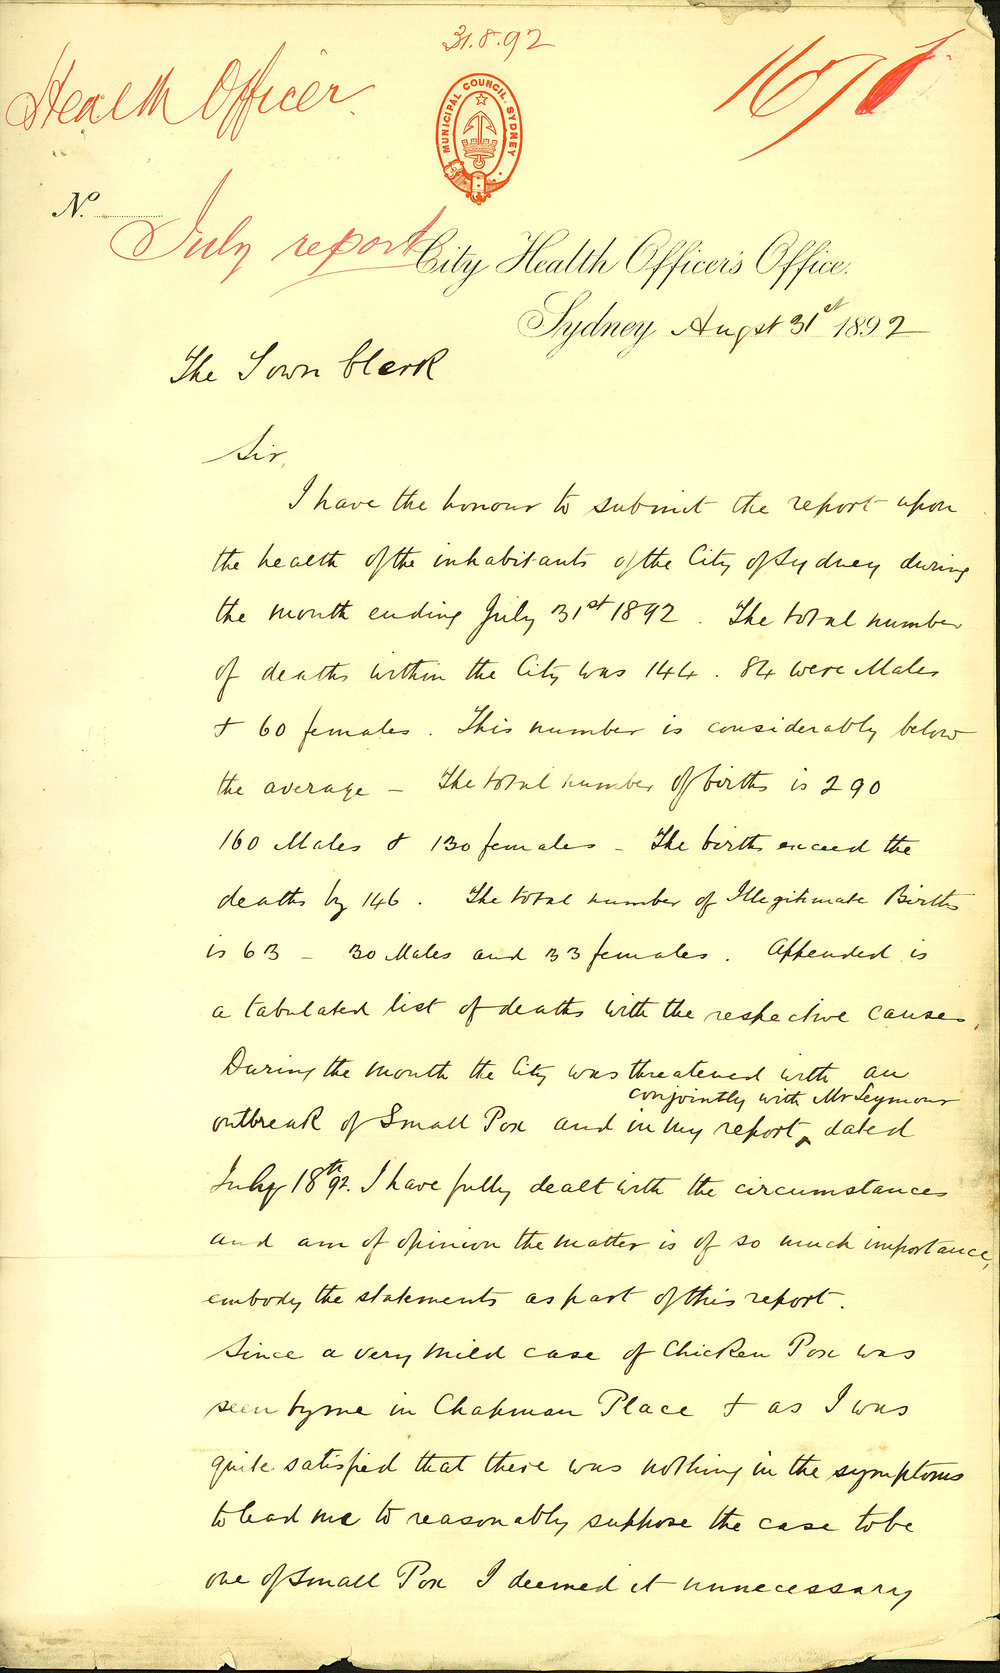 31.8.92
Health Officer.
MUNICIPAL COUNCIL. SYDNEY
No.
July report
City Health Officer's Office.
Sydney Augst 31st 1892
The Town Clerk
Sir,
I have the honour to submit the report upon
the health of the inhabitants of the City of Sydney during
the month ending July 31st 1892. The total number
of deaths within the City was 144. 84 were Males
& 60 females. This number is considerably below
the average - The total number of births is 290
160 Males & 130 females - The births exceed the
deaths by 146. The total number of Illegitimate Births
is 63 - 30 Males and 33 females. Appended is
a tabulated list of deaths with the respective causes
During the month the City was threatened with an
conjointly with Mr Seymour
outbreak of Small Pox and in my report, dated
July 18th 92. I have fully dealt with the circumstances
and am of opinion the matter is of so much importance,
embody the statements as part of this report.
Since a very mild case of Chicken Pox was
seen by me in Chapman Place & as I was
quite satisfied that there was nothing in the symptoms
to lead me to reasonably suppose the case to be
one of Small Pox I deemed it unnecessary